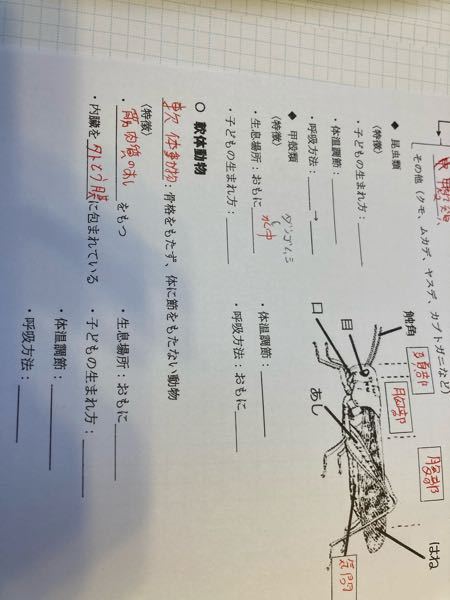 甲殻類、
その他（クモ、ムカデ、ヤスデ、カブトガニなど）
◆ 昆虫類
（特徴）
・子どもの生まれ方：
・体温調節：
・呼吸方法： →
触角
目
口
あし
はね
頭部
胸部
腹部
気門
◆ 甲殻類
（特徴）
ダンゴムシ
・生息場所：おもに 水中
・子どもの生まれ方：
・体温調節：
・呼吸方法：おもに
○ 軟体動物
軟体動物：骨格をもたず、体に節をもたない動物
（特徴）
・筋肉質のあし をもつ
・内臓を外とう膜に包まれている
・生息場所：おもに
・子どもの生まれ方：
・体温調節：
・呼吸方法：